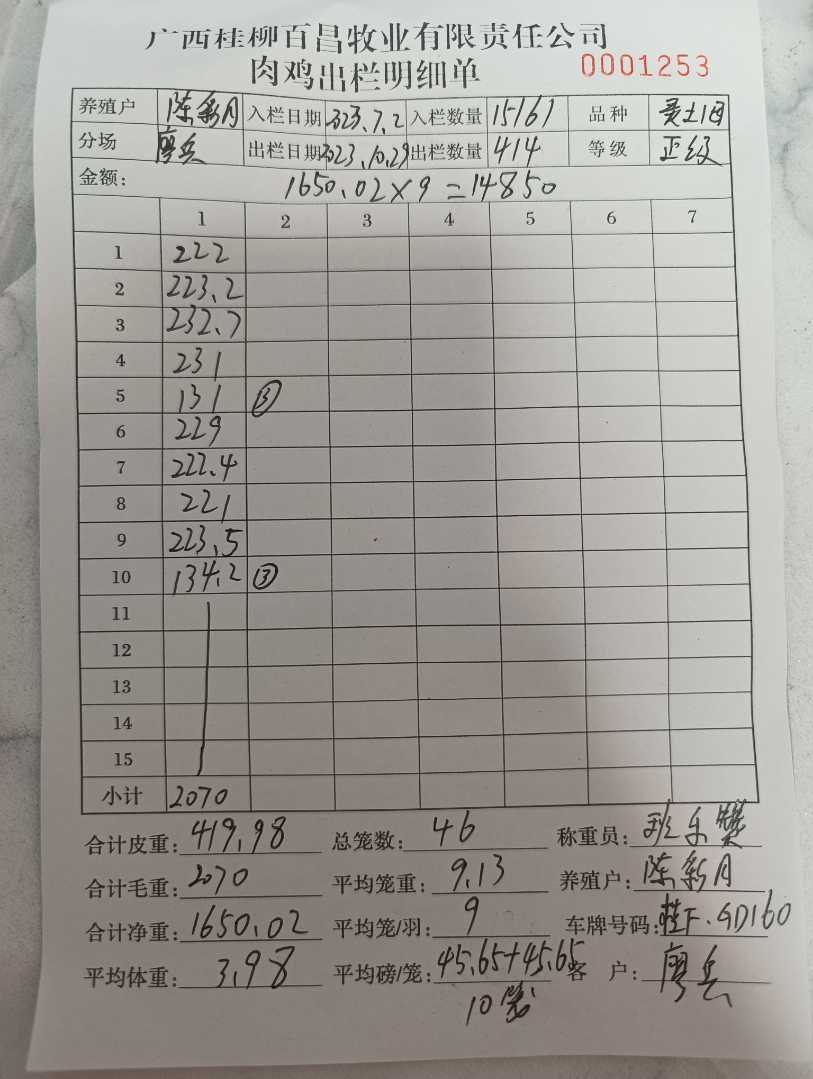 广西桂柳百昌牧业有限责任公司
肉鸡出栏明细单 0001253
养殖户 陈新月 入栏日期 2023.7.2 入栏数量 15161 品种
分场 廖兵 出栏日期 2023.10.29 出栏数量 414 等级 正级
金额: 1650.02×9=14850
1 2 3 4 5 6 7
1 222
2 223.2
3 232.7
4 231
5 131 ③
6 229
7 222.4
8 221
9 223.5
10 134.2 ③
11
12
13
14
15
小计 2070
合计皮重: 419.98 总笼数: 46 称重员:
合计毛重: 2070 平均笼重: 9.13 养殖户: 陈新月
合计净重: 1650.02 平均笼/羽: 9 车牌号码: 桂F.GD160
平均体重: 3.98 平均磅/笼: 45.65+45.65 客 户: 廖兵
10